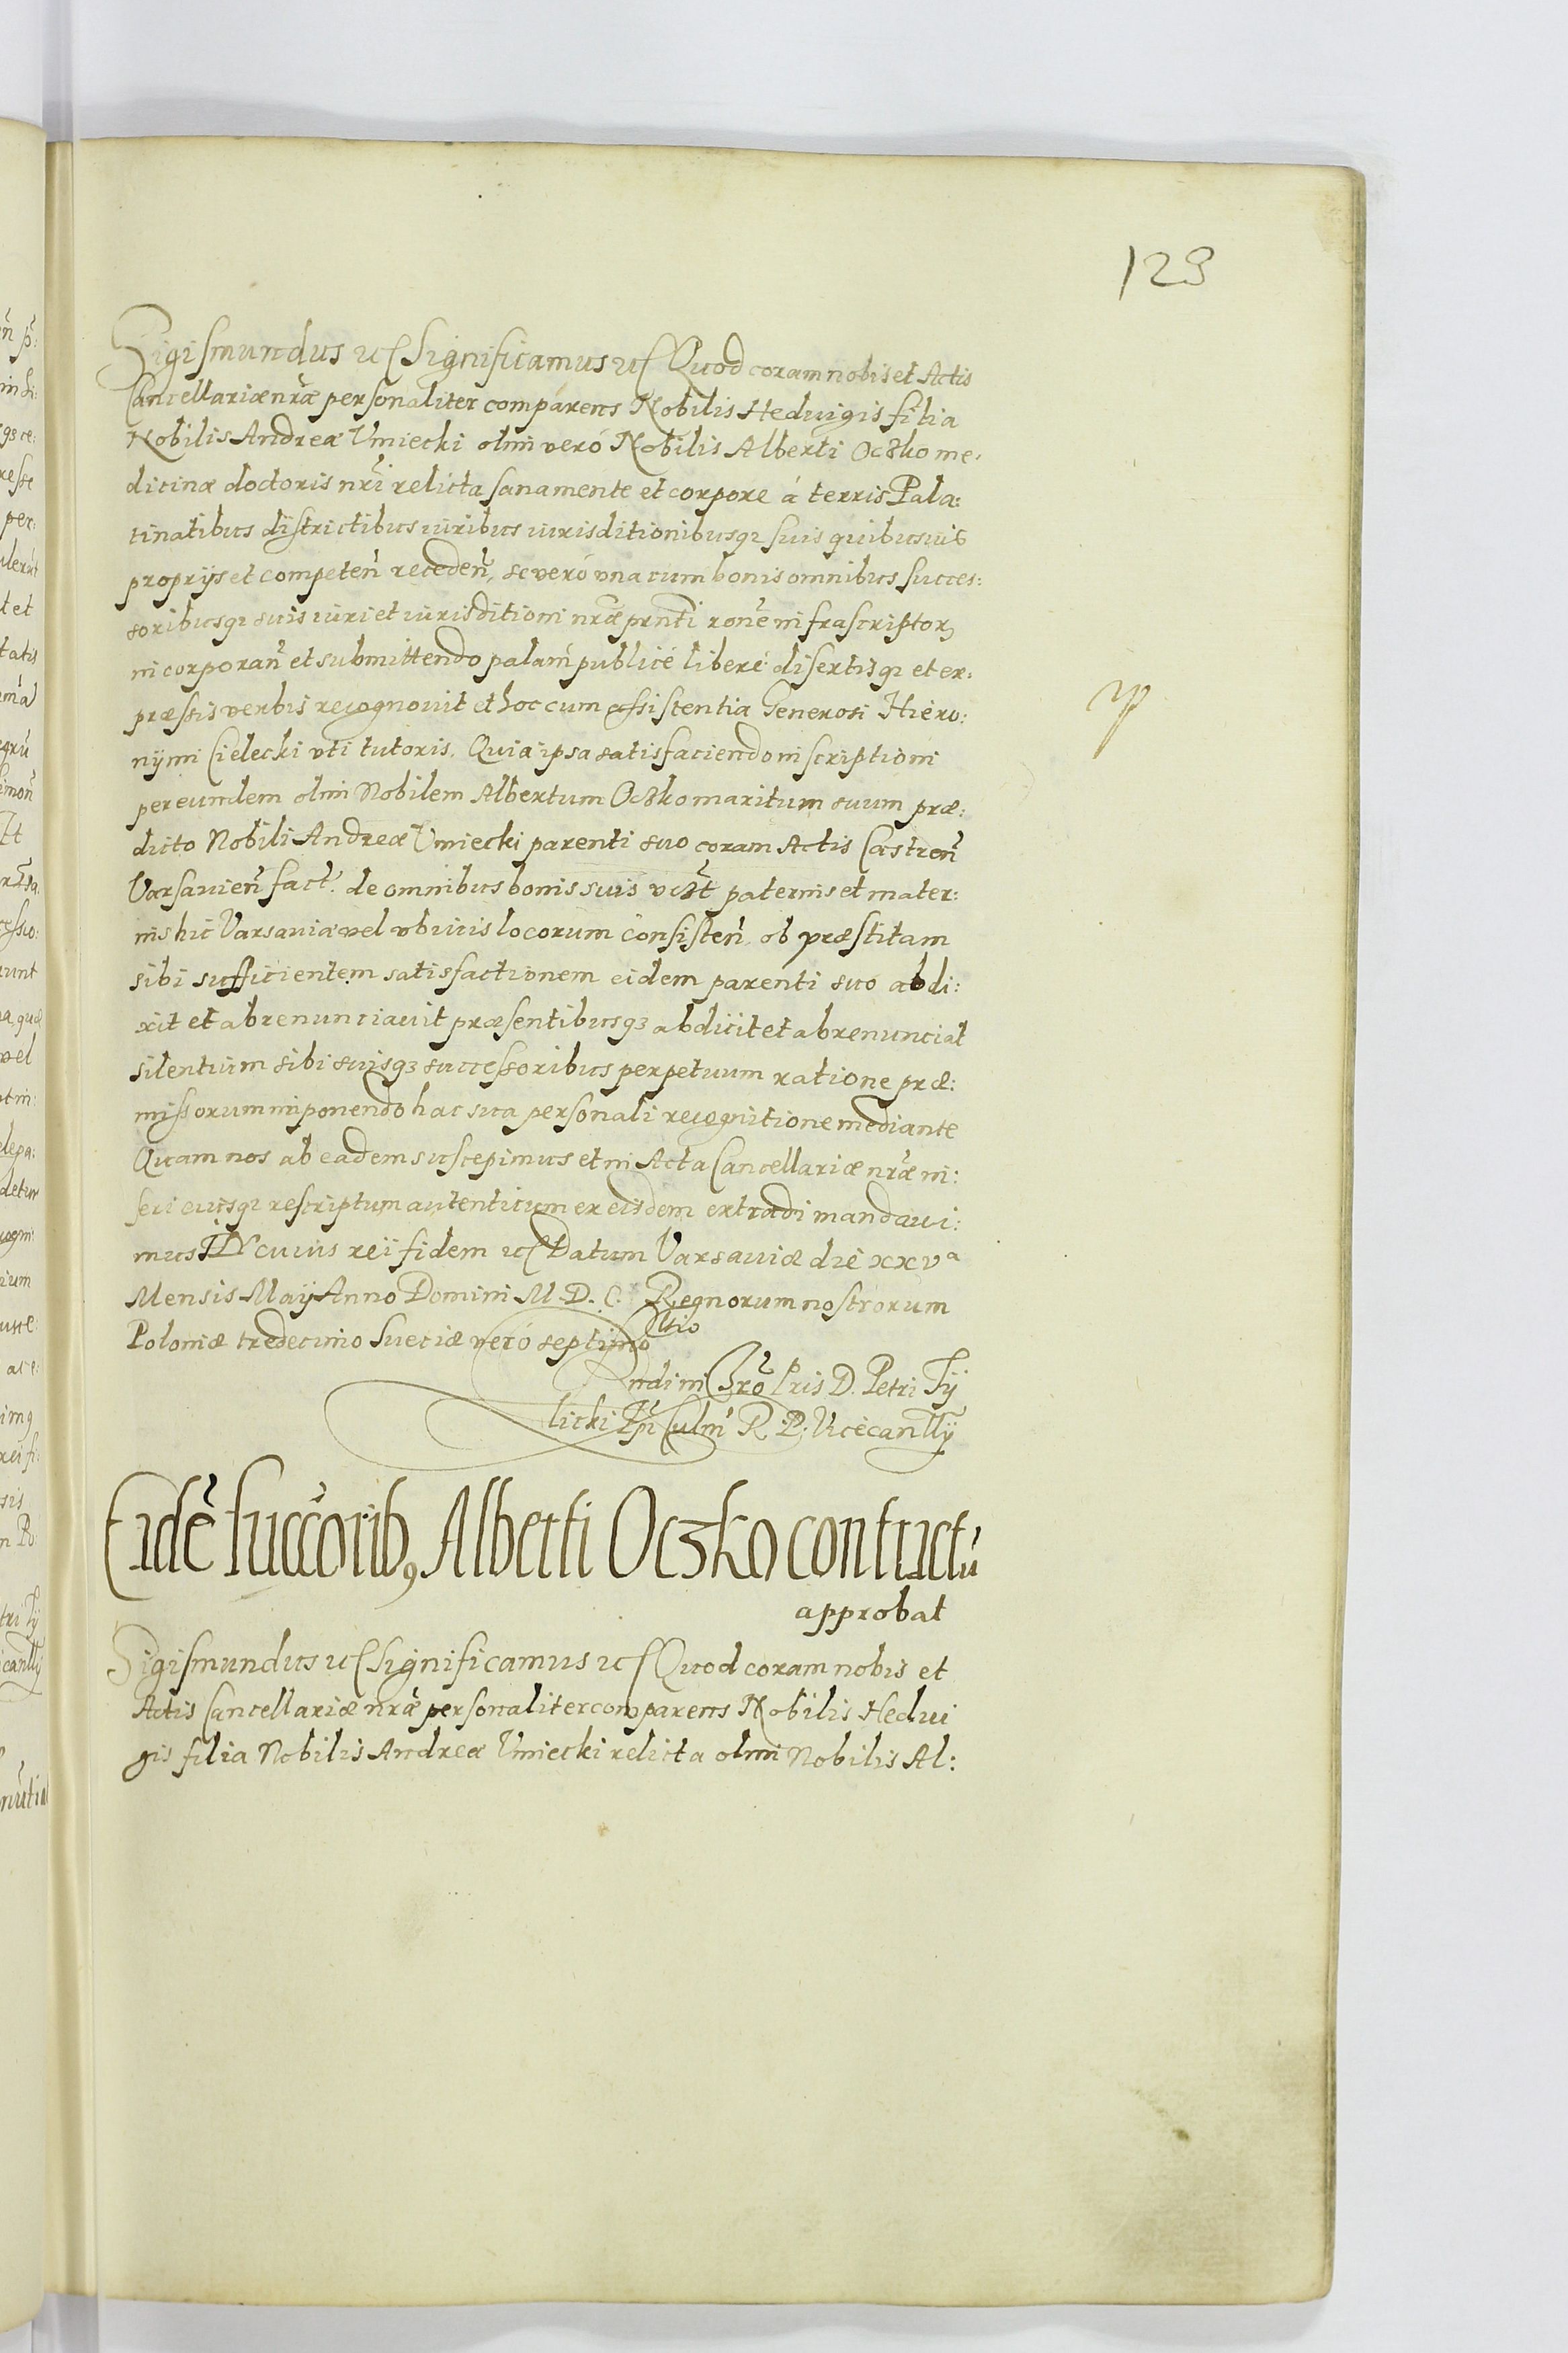 123
Sigismundus etc Significamus etc Quod coram nobis et Actis
Cancellariæ nr̃æ personaliter comparens Nobilis Hedvigis filia
Nobilis Andreæ Vmiecki olim veró Nobilis Alberti Oczko me,
dicinæ doctoris nr̃i relicta sana mente et corpore á terris Pala:
tinatibus districtibus iuribus iurisditionibusq3 suis quibusuis
proprijs et competeñ recedeñ, se veró vna cum bonis omnibus succes:
soribusq3 suis iuri et iurisditioni nr̃æ prñti roñe infrascriptor,
incorporañ et submittendo palam publicé liberé disertisq3 et ex,
præssis verbis recognouit et hoc cum assistentia Generosi Hiero:
nijmi Cielecki vti tutoris. Quia ipsa satisfaciendo inscriptioni
per eundem olim Nobilem Albertum Oczko maritum suum præ:
dicto Nobili Andreæ Vmiecki parenti suo coram Actis Castreñ
Varsauieñ fact. de omnibus bonis suis vcz̃t paternis et mater:
nis hic Varsauiæ vel vbiuis locorum consisteñ, ob præstitam
sibi sufficientem satisfactionem eidem parenti suo abdi:
xit et abrenunciauit præsentibusq3 abdicit et abrenunciat
silentium sibi suisq3 successoribus perpetuum ratione præ:
missorum imponendo hac sua personali recognitione mediante
Quam nos ab eadem suscepimus et in Acta Cancellariæ nr̃æ in:
seri eiusq3 rescriptum autenticum ex eisdem extradi mandaui:
mus IN cuius rei fidem etc Datum Varsauiæ die xxvª
Mensis Maij Anno Domini M.D.C. Regnorum nostrorum
Poloniæ tredecimo Sueciæ veró septimo
Rndi in Chr̃o Pris D. Petri Tij
licki Ep̃i Culm̃ R. P. Vicecanllij
Eidẽ succorib9 Alberti Oczko contractũ
approbat
Sigismundus etc Significamus etc Quod coram nobis et
Actis Cancellariæ nr̃æ personaliter comparens Nobilis Hedui
gis filia Nobilis Andreæ Vmiecki relicta olim Nobilis Al: